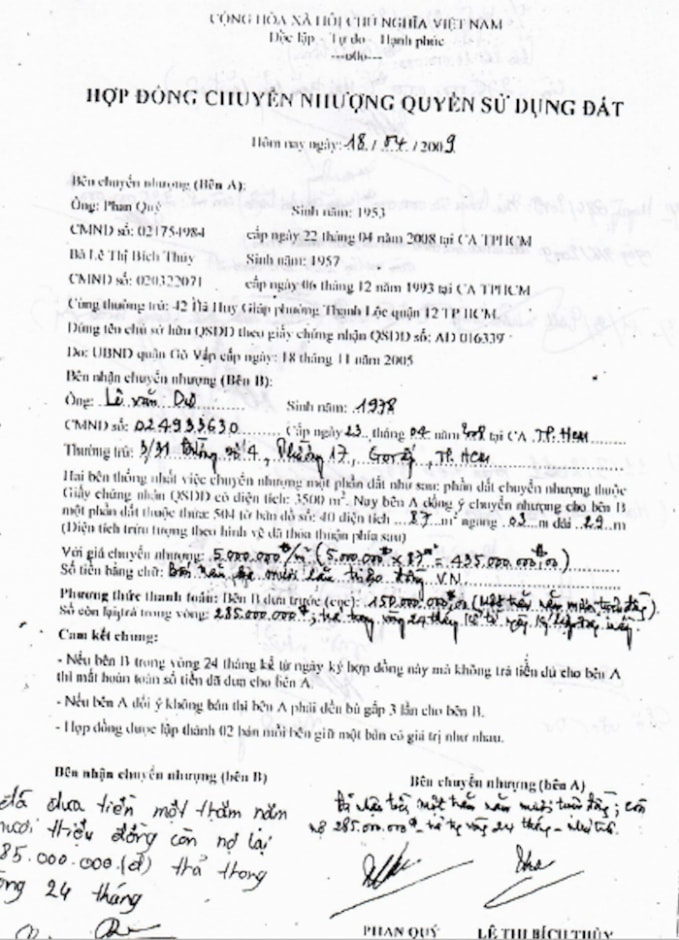 CỘNG HÒA XÃ HỘI CHỦ NGHĨA VIỆT NAM
Độc lập - Tự do - Hạnh phúc
---o0o---
HỢP ĐỒNG CHUYỂN NHƯỢNG QUYỀN SỬ DỤNG ĐẤT
Hôm nay ngày: 18 / 04 / 2009
Bên chuyển nhượng (Bên A):
Ông: Phan Quý Sinh năm: 1953
CMND số: 021754984 cấp ngày 22 tháng 04 năm 2008 tại CA TPHCM
Bà Lê Thị Bích Thủy Sinh năm: 1957
CMND số: 020322071 cấp ngày 06 tháng 12 năm 1993 tại CA TPHCM
Cùng thường trú: 42 Hà Huy Giáp phường Thạnh Lộc quận 12 TP HCM
Đứng tên chủ sở hữu QSDĐ theo giấy chứng nhận QSDĐ số: AD 016339
Do: UBND quận Gò Vấp cấp ngày: 18 tháng 11 năm 2005
Bên nhận chuyển nhượng (Bên B):
Ông: Lê Văn Sinh năm: 1978
CMND số: 024933630 Cấp ngày 23 tháng 04 năm 2008 tại CA TP. HCM
Thường trú: 3/31 đường số 4, Phường 17, Gò Vấp, TP. HCM
Hai bên thống nhất việc chuyển nhượng một phần đất như sau: phần đất chuyển nhượng thuộc
Giấy chứng nhận QSDĐ có diện tích: 3500 m². Nay bên A đồng ý chuyển nhượng cho bên B
một phần đất thuộc thửa: 504 tờ bản đồ số: 40 diện tích 87 m² ngang 03 m dài 29 m
(Diện tích trừu tượng theo hình vẽ đã thỏa thuận phía sau)
Với giá chuyển nhượng: 5.000.000đ/m² (5.000.000đ x 87m² = 435.000.000đ)
Số tiền bằng chữ: Bốn trăm ba mươi lăm triệu đồng VN
Phương thức thanh toán: Bên B đưa trước (cọc): 150.000.000 (Một trăm năm mươi triệu đồng)
Số còn lại trả trong vòng: 285.000.000đ, trả trong vòng 24 tháng kể từ ngày ký hợp đồng này
Cam kết chung:
- Nếu bên B trong vòng 24 tháng kể từ ngày ký hợp đồng này mà không trả tiền đủ cho bên A
thì mất hoàn toàn số tiền đã đưa cho bên A.
- Nếu bên A đổi ý không bán thì bên A phải đền bù gấp 3 lần cho bên B.
- Hợp đồng được lập thành 02 bản mỗi bên giữ một bản có giá trị như nhau.
Bên nhận chuyển nhượng (bên B) Bên chuyển nhượng (bên A)
đã đưa tiền một trăm năm
mươi triệu đồng còn nợ lại
85.000.000.(đ) trả trong
24 tháng
một trăm năm mươi triệu đồng; còn
nợ 285.000.000đ vòng 24 tháng
PHAN QUÝ LÊ THỊ BÍCH THỦY